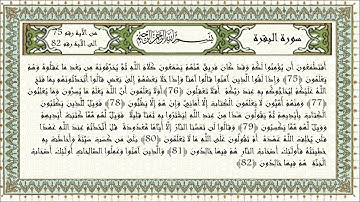 سورة البقرة
بسم الله الرحمن الرحيم
من الآية رقم 75
الى الآية رقم 82
أفتطمعون أن يؤمنوا لكم وقد كان فريق منهم يسمعون كلام الله ثم يحرفونه من بعد ما عقلوه وهم
يعلمون (75) وإذا لقوا الذين آمنوا قالوا آمنا وإذا خلا بعضهم إلى بعض قالوا أتحدثونهم بما فتح
الله عليكم ليحاجوكم به عند ربكم أفلا تعقلون (76) أولا يعلمون أن الله يعلم ما يسرون وما يعلنون
(77) ومنهم أميون لا يعلمون الكتاب إلا أماني وإن هم إلا يظنون (78) فويل للذين يكتبون
الكتاب بأيديهم ثم يقولون هذا من عند الله ليشتروا به ثمنا قليلا فويل لهم مما كتبت أيديهم
وويل لهم مما يكسبون (79) وقالوا لن تمسنا النار إلا أياما معدودة قل أتخذتم عند الله عهدا
فلن يخلف الله عهده أم تقولون على الله ما لا تعلمون (80) بلى من كسب سيئة وأحاطت به
خطيئته فأولئك أصحاب النار هم فيها خالدون (81) والذين آمنوا وعملوا الصالحات أولئك أصحاب
الجنة هم فيها خالدون (82)